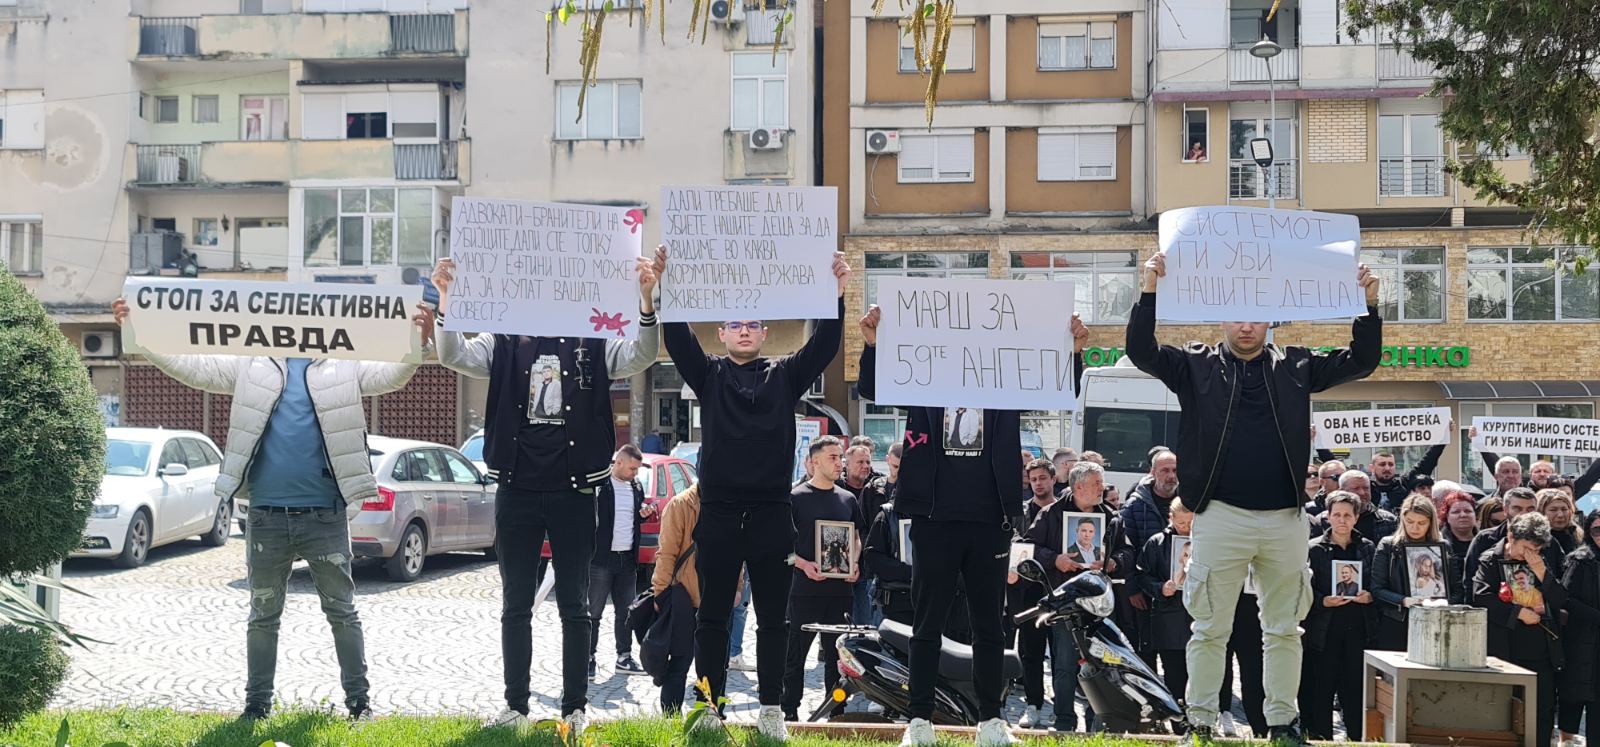 СТОП ЗА СЕЛЕКТИВНА
ПРАВДА
АДВОКАТИ-БРАНИТЕЛИ НА
УБИЈЦИТЕ ДАЛИ СТЕ ТОЛКУ
МНОГУ ЕФТИНИ ШТО МОЖЕ
ДА ЈА КУПАТ ВАШАТА
СОВЕСТ?
ДАЛИ ТРЕБАШЕ ДА ГИ
УБИЕТЕ НАШИТЕ ДЕЦА ЗА ДА
УВИДИМЕ ВО КАКВА
КОРУМПИРАНА ДРЖАВА
ЖИВЕЕМЕ???
МАРШ ЗА
59ТЕ АНГЕЛИ
СИСТЕМОТ
ГИ УБИ
НАШИТЕ ДЕЦА!
ОВА НЕ Е НЕСРЕЌА
ОВА Е УБИСТВО
КУРУПТИВНИО СИСТЕ
ГИ УБИ НАШИТЕ ДЕЦА